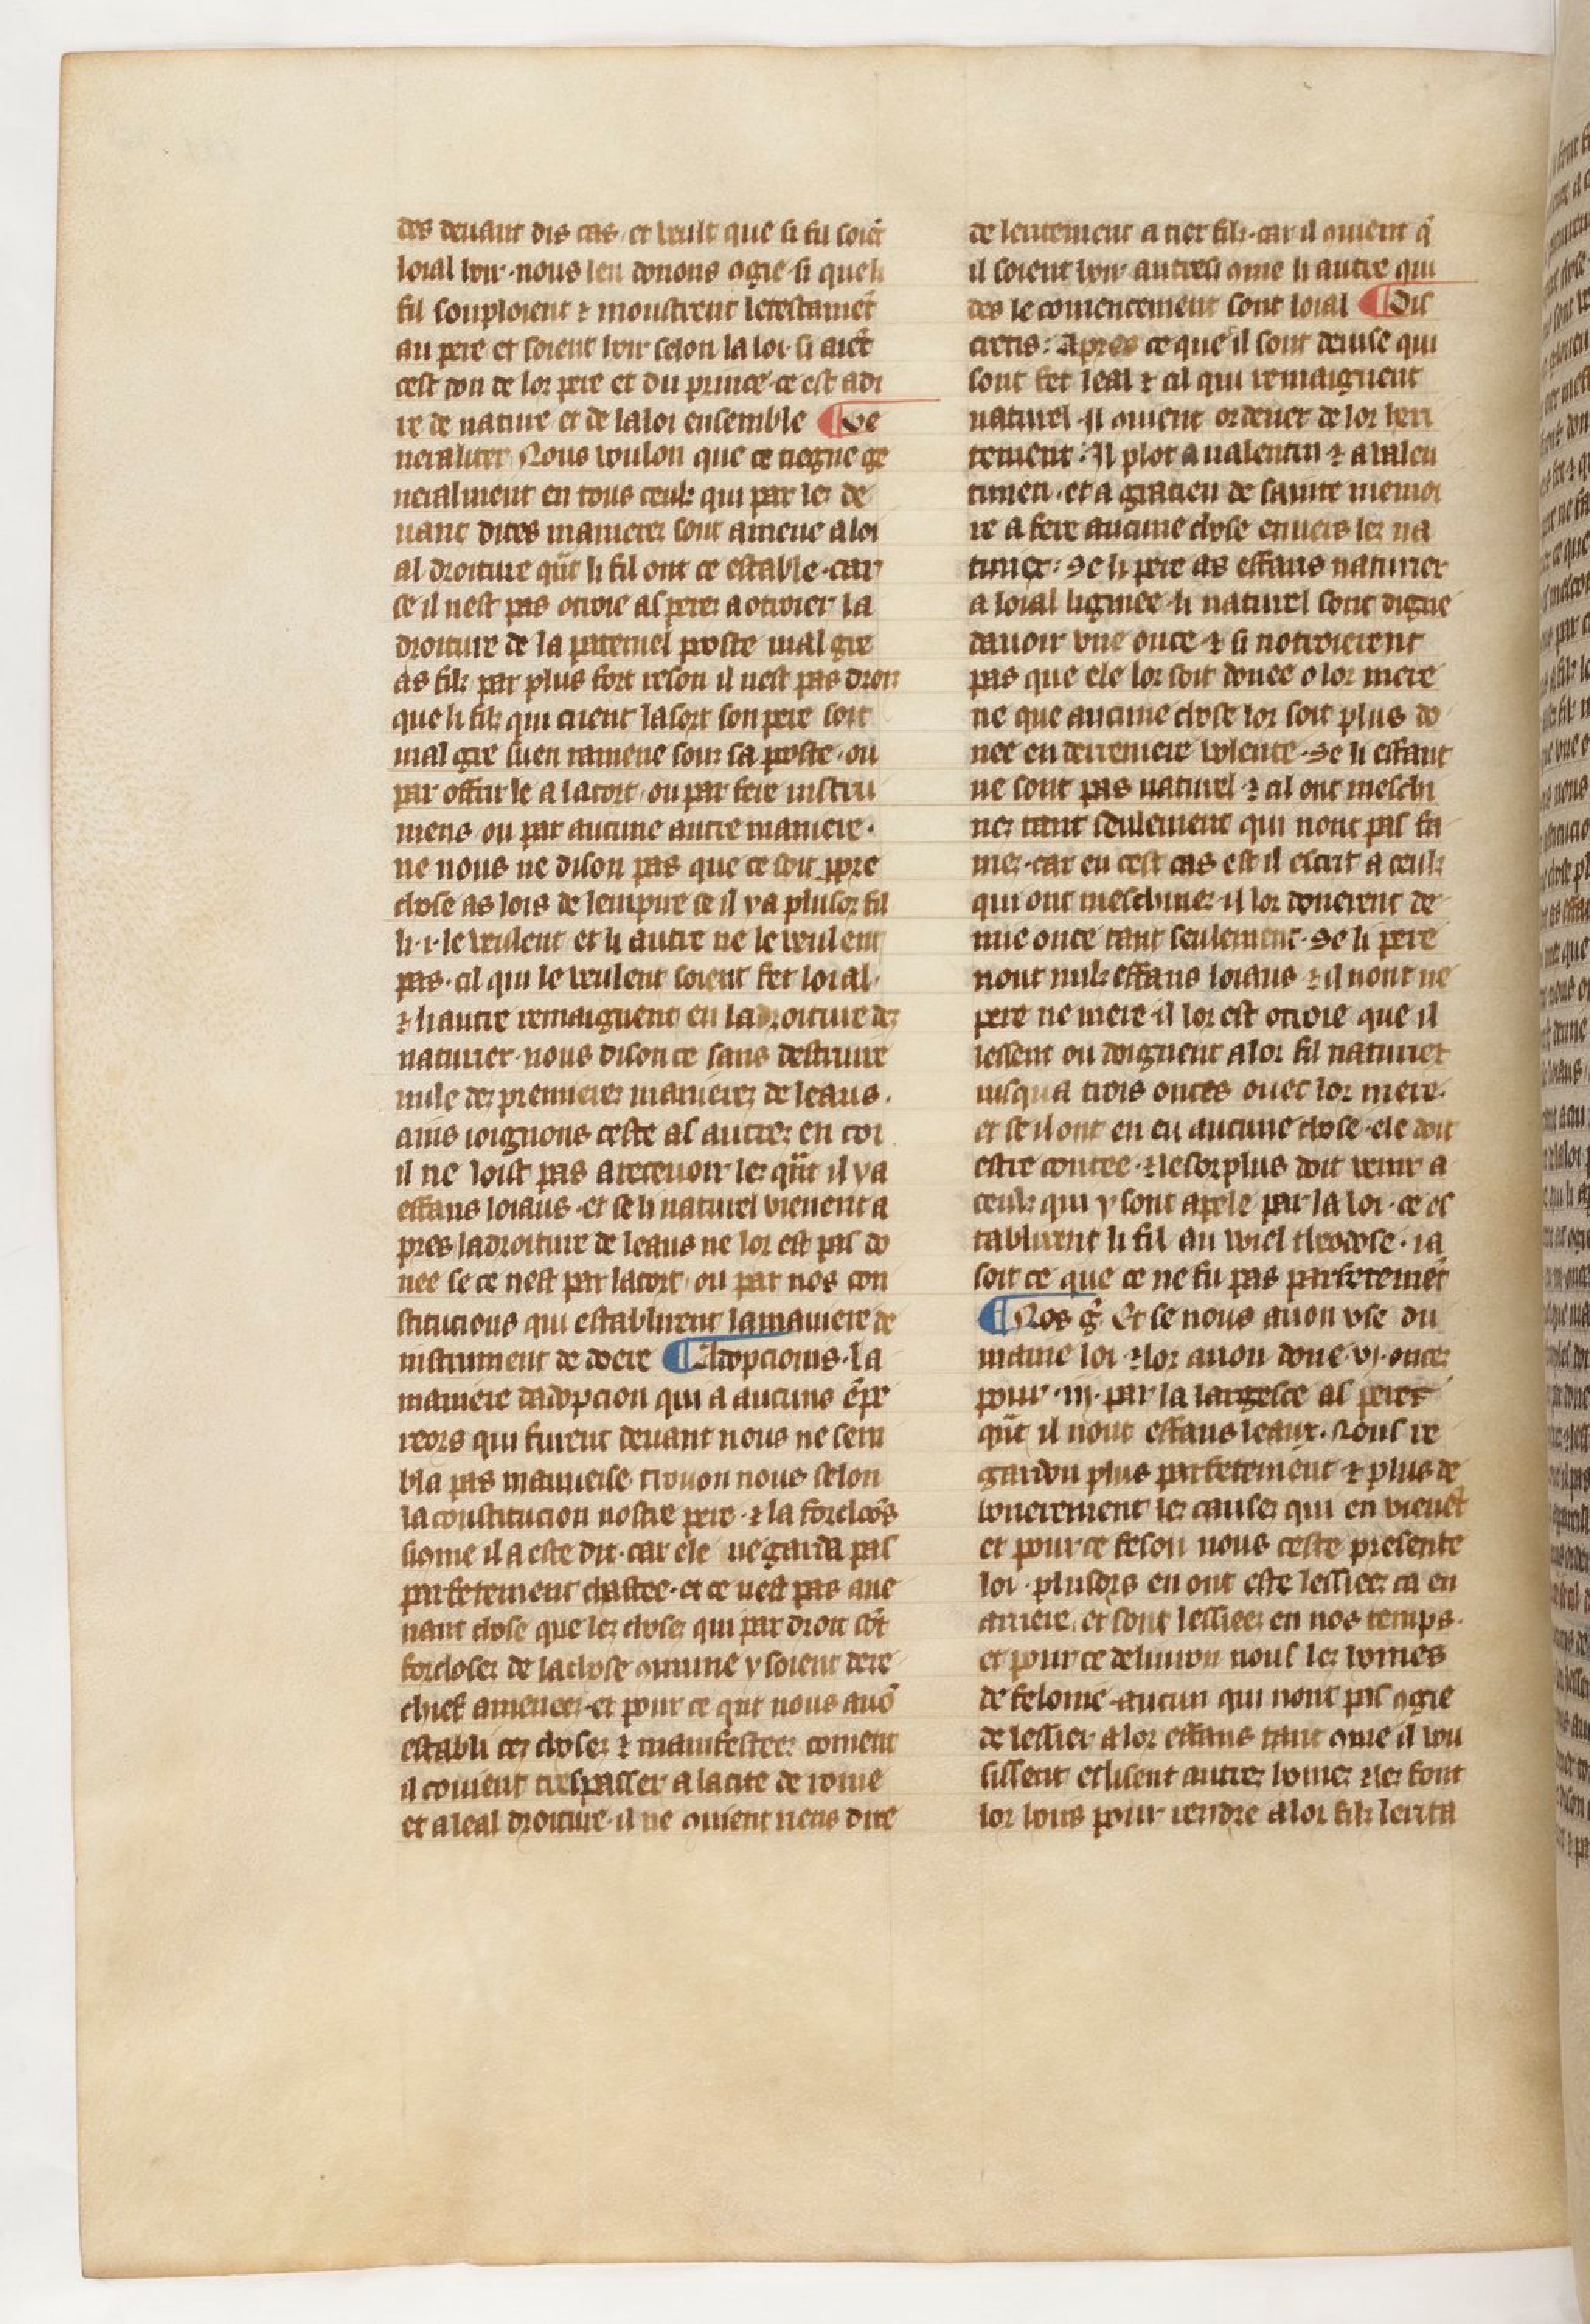 des deuant dis cas. et veult que si fil soiēt
loial hoir. nous leu donons ꝯgie si que li
fil souploient ⁊ monstrent letestamēt
au pere et soient hoir selon la loi. si aiēt
cest don de lor pere et du prince. ce est adi
re de nature et de la loi ensemble ¶ Ge
neraliter Nous voulon que ce tiegne ge
neralment en tous ceulz qui par lez de
uant dites manierez sont amene a loi
al droiture qūt li fil ont ce estable. car
se il nest pas otroie as perez a otroier la
droiture de la paternel poste mal gre
as filz par plus fort reson il nest pas droit
que li filz qui crient la sort son pere soit
mal gre suen ramene souz sa poste. ou
par offrir le a la cort. ou par fere instru
mens ou par aucune autre maniere.
ne nous ne dison pas que ce soit ꝓpre
chose as lois de lempire se il y a plusor fil
li .i. le veulent et li autre ne le veulent
pas. cil qui le veulent soient fet loial.
⁊ li autre remaignent en la droiture dez
naturier. nous dison ce sans destruire
nule dez premierez manierez de leaus.
ains ioignons ceste as autrez en coi
il ne loist pas a receuoir lez qūt il y a
effans loiaus. et se li naturel vienent a
pres la droiture de leaus ne lor est pas do
nee se ce nest par la cort. ou par nos con
stitucions qui establirent la maniere de
instrument de doere ¶ Adopcionis. la
maniere dadopcion qui a aucuns ēpe
reors qui furent deuant nous ne sem
bla pas mauueise trouon nous selon
la constitucion nostre pere. ⁊ la forcloōs
si ome il a este dit. car ele ne garda pas
parfetement chastee. et ce nest pas aue
nant chose que lez chosez qui par droit sōt
forclosez de la chose ꝯmune y soient dere
chief ameneez. et pour ce qūt nous auō
establi cez chosez ⁊ manifesteez coment
il couient trespasser a la cite de rome
et a leal droiture. il ne ꝯuient riens dire
de lentement a tiex filz. car il ꝯuient q̄
il soient hoir autresi ꝯme li autre qui
des le comencement sont loial ¶ Dis
cretis: Apres ce que il sont deuise qui
sont fet leal ⁊ cil qui remaignent
naturel. il ꝯuient ordener de lor heri
tement: Il plot a ualentin ⁊ a valen
tinien. et a gracien de sainte memoi
re a fere aucune chose enuers lez na
turiex: Se li pere as effans naturiex
a loial lignee. li naturel sont digne
dauoir vne once ⁊ si notroierent
pas que ele lor soit donee o lor mere
ne que aucune chose lor soit plus do
nee en derreniere volente. Se li effant
ne sont pas naturel ⁊ cil ont meschi
nez tant seulement qui nont pas fa
mez. car en cest cas est il escrit a ceulz
qui ont meschinez. il lor donerent de
mie once tant seulement. Se li pere
nont nulz effans loiaus ⁊ il nont ne
pere ne mere. il lor est otroie que il
lessent ou doignent a lor fil naturiex
iusqua trois onces ouec lor mere.
et se il ont en eu aucune chose. ele doit
estre contee. ⁊ le sorplus doit venir a
ceulz qui y sont apele par la loi. ce es
tablirent li fil au viel theodose. ia
soit ce que ce ne fu pas parfetemēt
¶ Nos ḡ. Et se nous auon vse du
maine loi ⁊ lor auon done .vi. oncez
pour .iij. par la largesce as perez
qūt il nont effans leaux. Nous re
gardon plus parfetement ⁊ plus de
bonerement lez causez qui en vienēt
et pour ce feson nous ceste presente
loi. plusors en ont este lessiez ca en
arriere. et sont lessiez en nos temps.
et pour ce deliuron nous lez homes
de felonie. aucun qui nont pas ꝯgie
de lessier a lor effans tant ꝯme il vou
sissent eslisent autrez homez ⁊ lez font
lor hoirs pour rendre a lor filz lerita